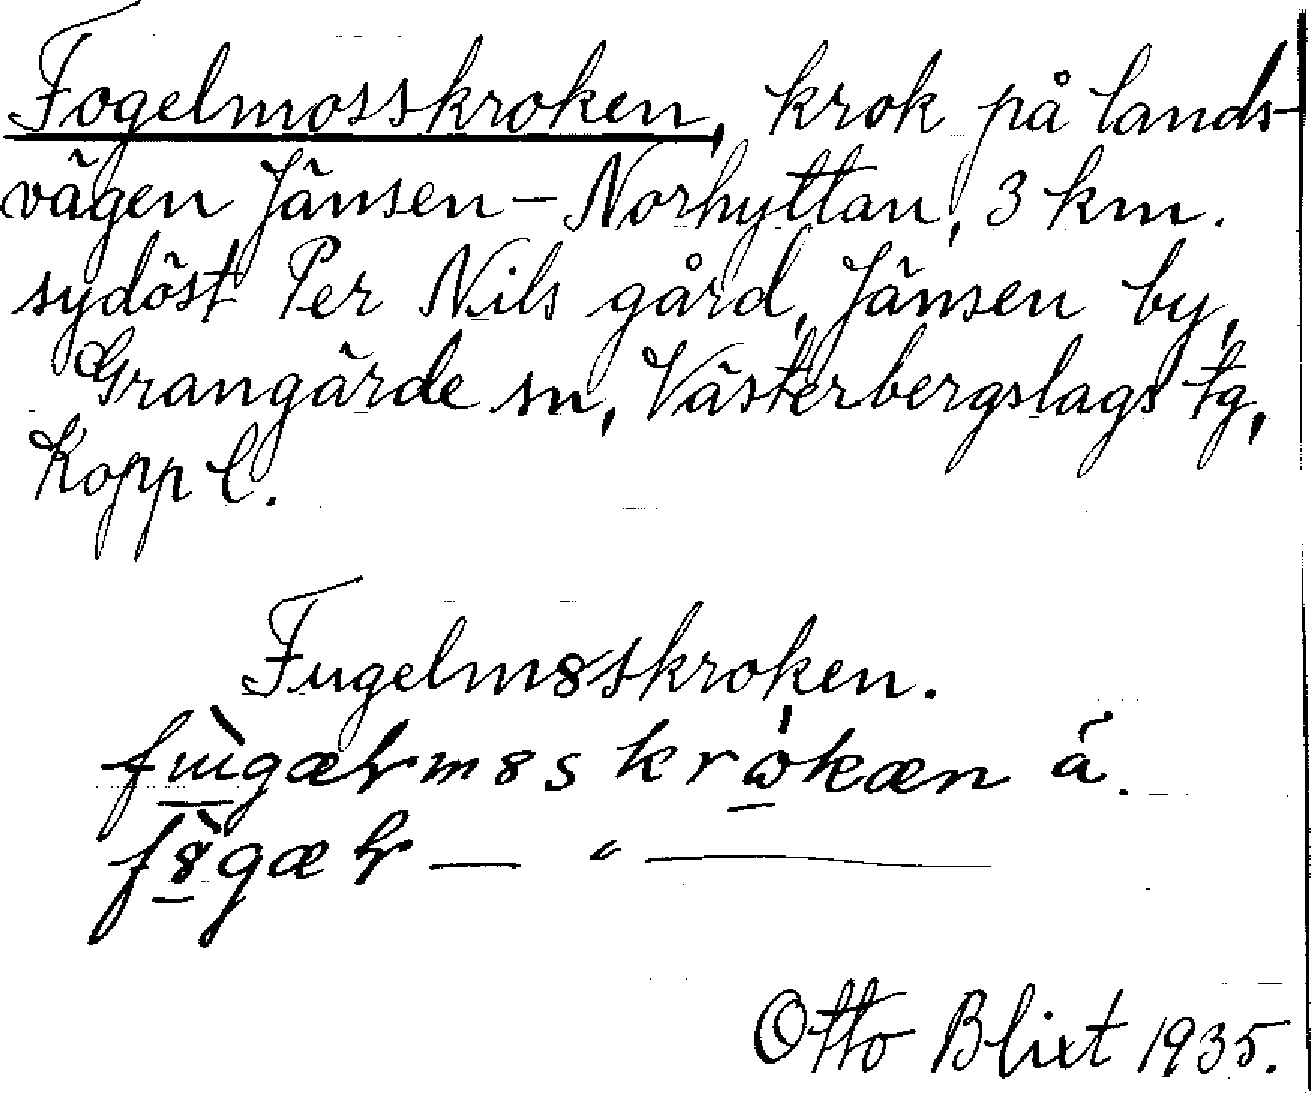 Fogelmosskroken, krok på lands-
vägen Jänsen - Norhyttan, 3 km.
sydöst Per Nils gård, Jänsen by,
Grangärde sn, Västerbergslags tg,
Kopp l.
Fugelm8sskroken.
fɯ̀gæɽm8s krώkæn á.
f8̀gæɽ — " —
Otto Blixt 1935.